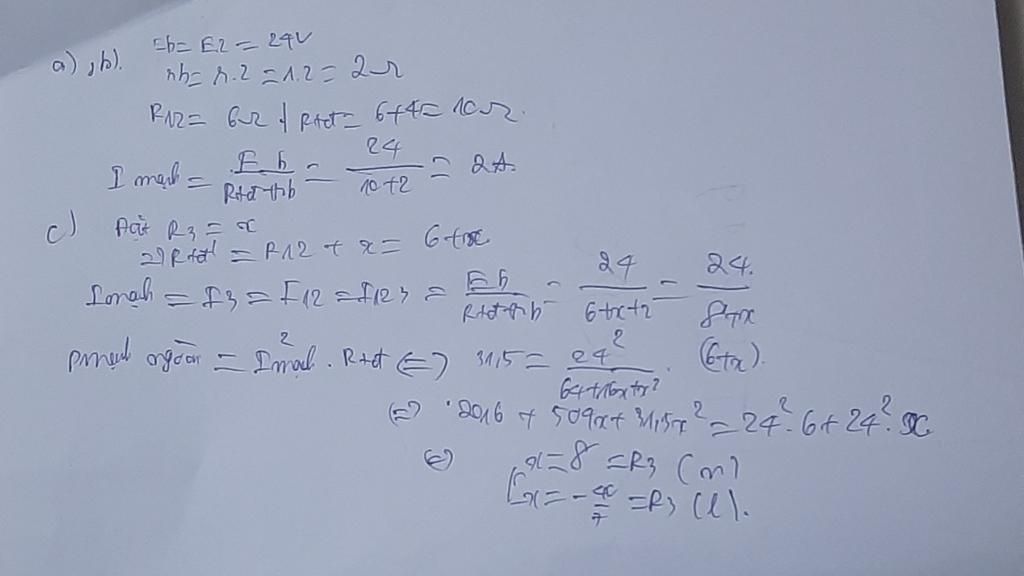 a), b). Eb = E2 = 24V
rb = r.2 = 1.2 = 2Ω
R12 = 6Ω Rtđ = 6+4 = 10Ω.
I mạch = Eb / Rtđ+rb = 24 / 10+2 = 2A.
c) Đặt R3 = x
=> Rtđ = R12 + x = 6+x
Imạch = I3 = I12 = I123 = Eb / Rtđ+rb = 24 / 6+x+2 = 24. / 8+x
Pmạch ngoài = I²mạch . Rtđ <=> 31,5 = 24² / 64+16x+x² . (6+x).
<=> 2016 + 504x + 31,5x² = 24².6 + 24².x
<=> [ x = 8 = R3 (n)
x = - 40/7 = R3 (l).